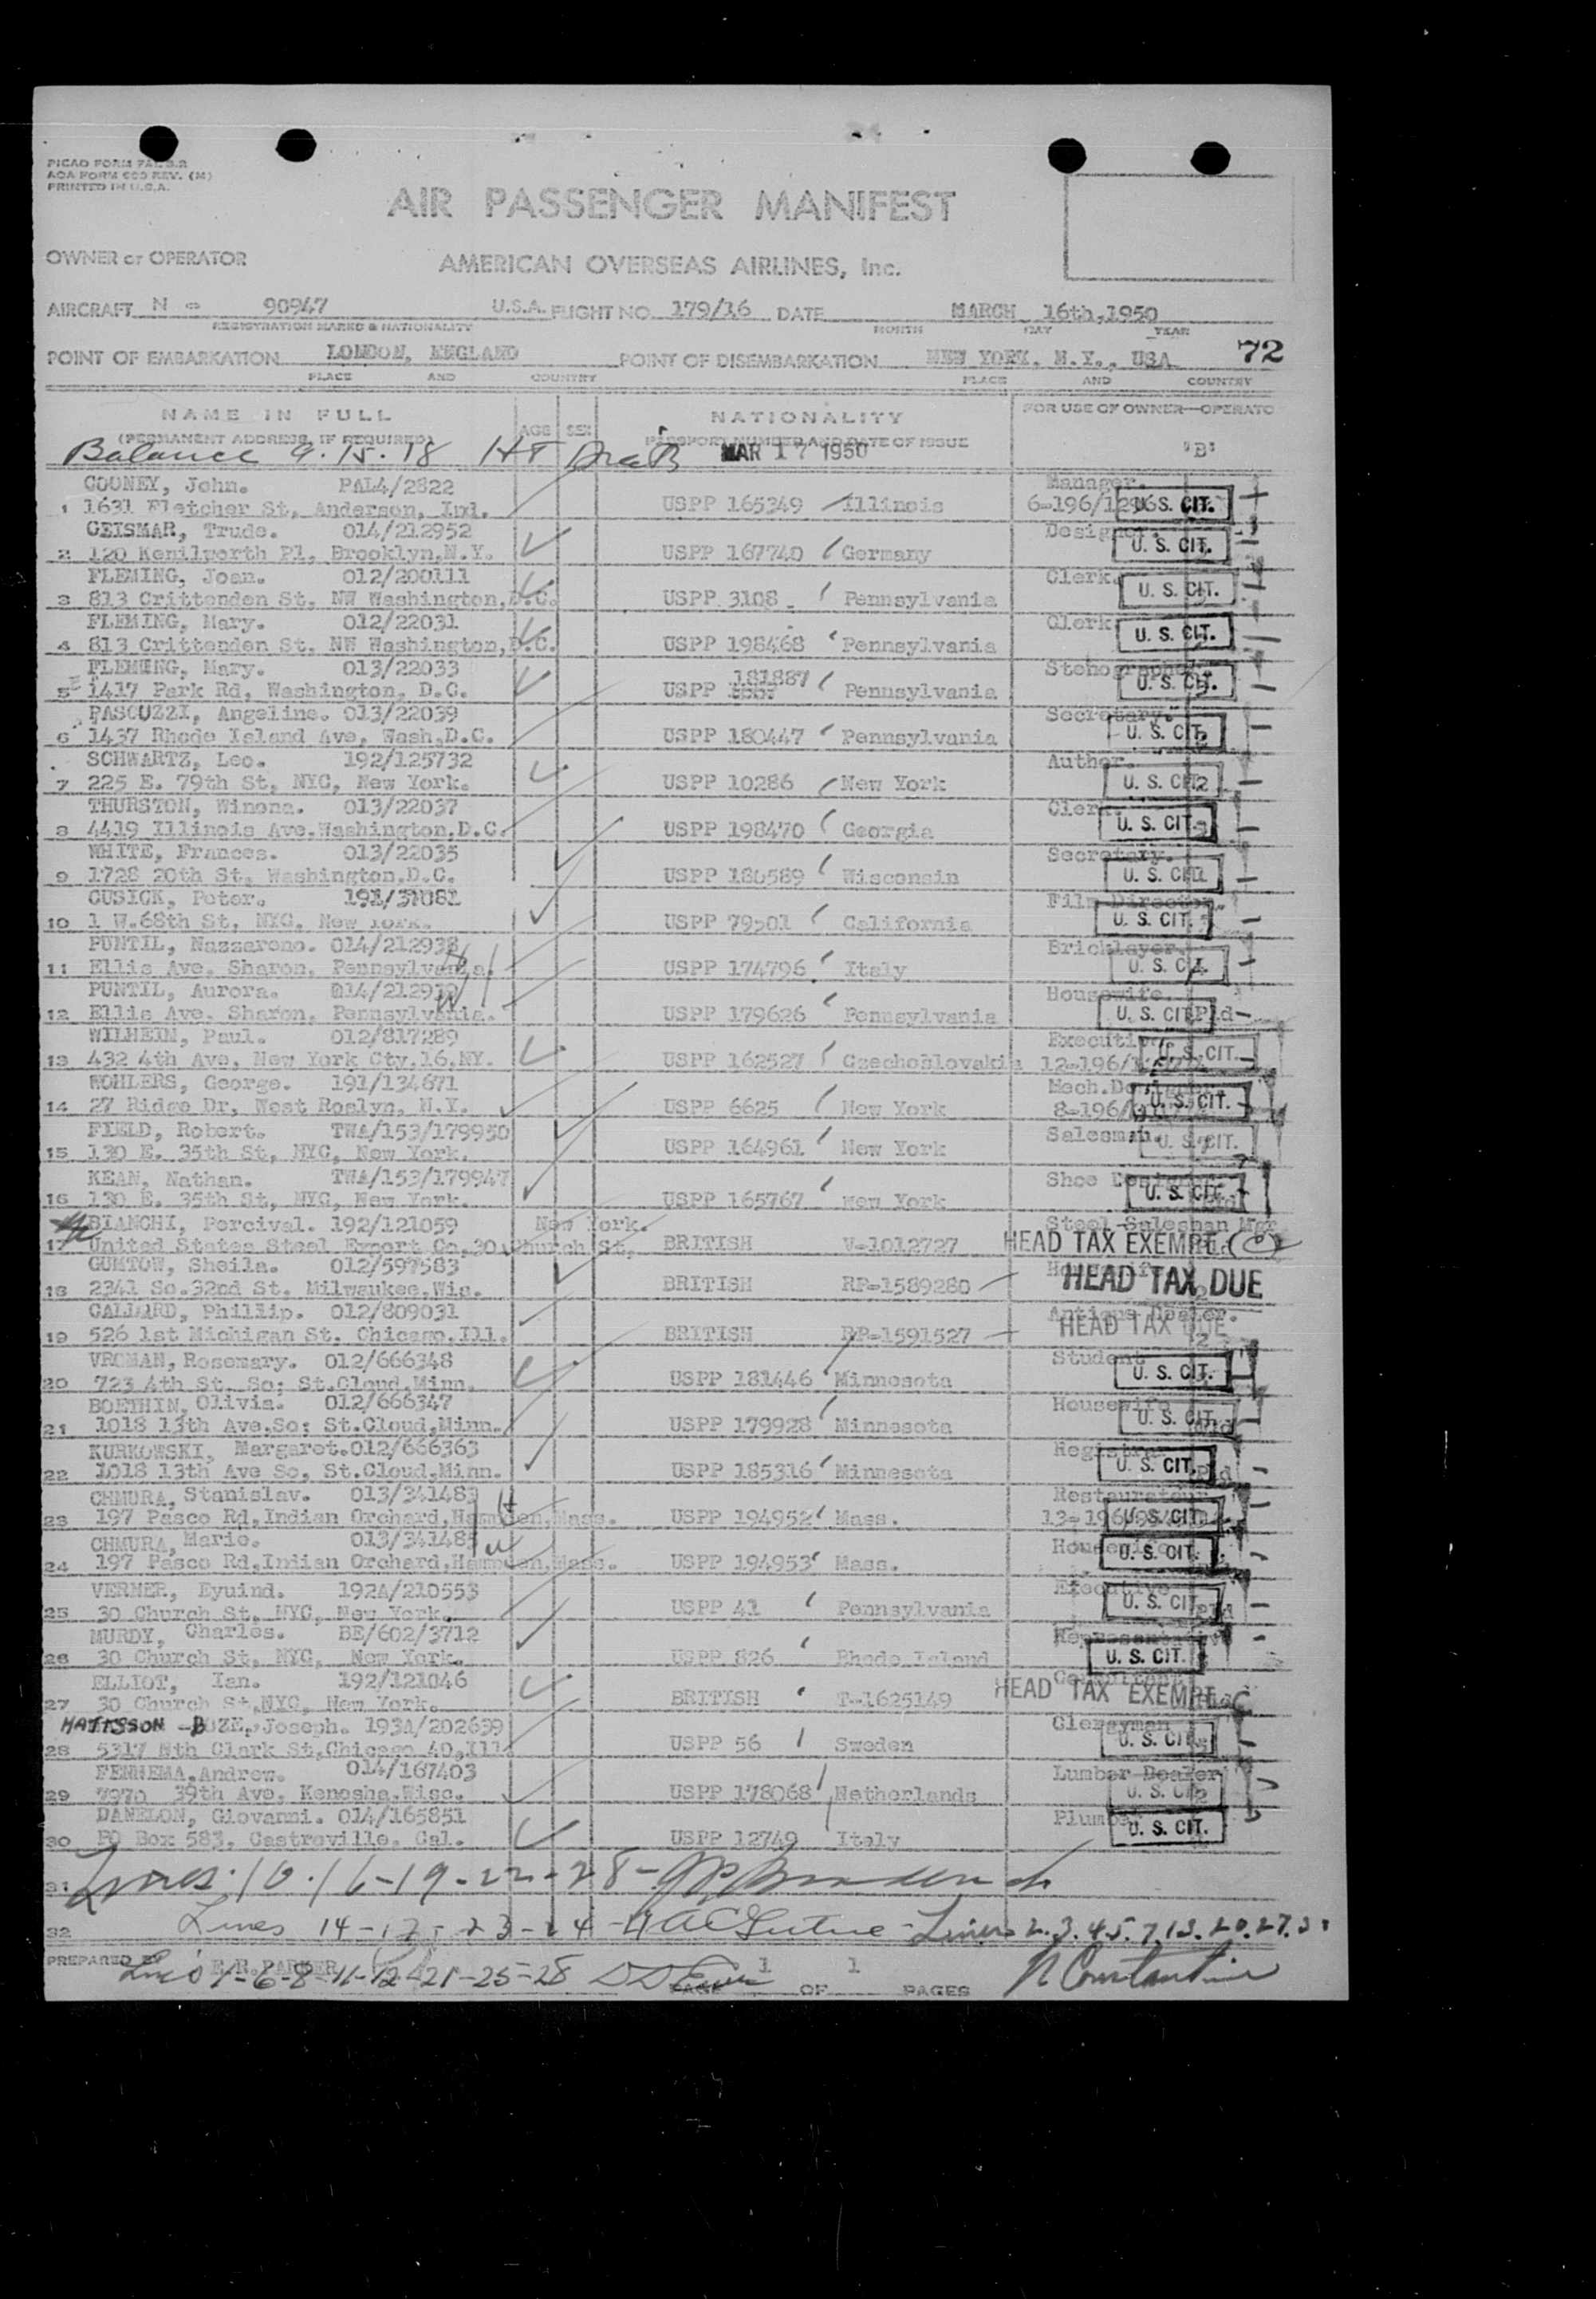 PICAO FORM PAL 3.2
AOA FORM 609 REV. (M)
PRINTED IN U.S.A.
AIR PASSENGER MANIFEST
OWNER or OPERATOR AMERICAN OVERSEAS AIRLINES, Inc.
AIRCRAFT N - 90947 U.S.A. FLIGHT NO. 179/16 DATE MARCH 16th,1950
REGISTRATION MARKS & NATIONALITY MONTH DAY YEAR
POINT OF EMBARKATION LONDON, ENGLAND POINT OF DISEMBARKATION NEW YORK, N.Y., USA 72
PLACE AND COUNTRY PLACE AND COUNTRY
NAME IN FULL AGE SEX NATIONALITY FOR USE OF OWNER—OPERATO
(PERMANENT ADDRESS, IF REQUIRED) PASSPORT NUMBER AND DATE OF ISSUE
Balance 9. 15. 18 HT MAR 17 1950 "B"
COONEY, John. PAL4/2822 Manager.
1 1631 Fletcher St, Anderson, Ind. USPP 165349 Illinois 6-196/1296 U.S. CIT.
GEISMAR, Trude. 014/212952 Designer.
2 120 Kenilworth Pl, Brooklyn,N.Y. USPP 167740 Germany U. S. CIT.
FLEMING, Joan. 012/200111 Clerk.
3 813 Crittenden St, NW Washington,D.C. USPP 3108 Pennsylvania U. S. CIT.
FLEMING, Mary. 012/22031 Clerk
4 813 Crittenden St, NW Washington,D.C. USPP 198468 Pennsylvania U. S. CIT.
FLEMING, Mary. 013/22033 181887 Stenographer
5 1417 Park Rd, Washington, D.C. USPP Pennsylvania U. S. CIT.
PASCUZZI, Angeline. 013/22039 Secretary.
6 1437 Rhode Island Ave, Wash,D.C. USPP 180447 Pennsylvania U. S. CIT.
SCHWARTZ, Leo. 192/125732 Author.
7 225 E. 79th St, NYC, New York. USPP 10286 New York U. S. CIT.
THURSTON, Winona. 013/22037 Clerk
8 4419 Illinois Ave.Washington,D.C. USPP 198470 Georgia U. S. CIT.
WHITE, Frances. 013/22035 Secretary.
9 1728 20th St, Washington,D.C. USPP 180589 Wisconsin U. S. CIT.
CUSICK, Peter. 191/31081 Film Director.
10 1 W.68th St, NYC, New York. USPP 79501 California U. S. CIT.
PUNTIL, Nazzareno. 014/212938 Bricklayer.
11 Ellis Ave, Sharon, Pennsylvania. USPP 174796 Italy U. S. CIT.
PUNTIL, Aurora. 014/212939 Housewife.
12 Ellis Ave. Sharon, Pennsylvania. USPP 179626 Pennsylvania U. S. CIT.
WILHEIM, Paul. 012/817289 Executive
13 432 4th Ave, New York Cty,16,NY. USPP 162527 Czechoslovakia 12-196/ U. S. CIT.
WOHLERS, George. 191/134671 Mech.
14 27 Ridge Dr, West Roslyn, N.Y. USPP 6625 New York 8-196/ U. S. CIT.
FIELD, Robert. TWA/153/179950 Salesman.
15 130 E. 35th St, NYC, New York. USPP 164961 New York U. S. CIT.
KEAN, Nathan. TWA/153/179947 Shoe
16 130 E. 35th St, NYC, New York. USPP 165767 New York U. S. CIT.
BIANCHI, Percival. 192/121059 New York. Steel Salesman Mgr
17 United States Steel Export Co,30 Church St, BRITISH V-1012727 HEAD TAX EXEMPT (C)
GUMTOW, Sheila. 012/597583 Housewife
18 2341 So.32nd St. Milwaukee,Wis. BRITISH RP-1589280 HEAD TAX DUE
GALLARD, Phillip. 012/809031 Antique Dealer.
19 526 1st Michigan St, Chicago,Ill. BRITISH RP-1591527 HEAD TAX DUE
VROMAN, Rosemary. 012/666348 Student
20 723 4th St. So; St.Cloud,Minn. USPP 181446 Minnesota U. S. CIT.
BOETHIN, Olivia. 012/666347 Housewife
21 1018 13th Ave,So; St.Cloud,Minn. USPP 179928 Minnesota U. S. CIT.
KURKOWSKI, Margaret.012/666363 Registrar
22 1018 13th Ave So, St.Cloud,Minn. USPP 185316 Minnesota U. S. CIT.
CHMURA, Stanislav. 013/341483 Restaurateur
23 197 Pasco Rd,Indian Orchard,Hampden,Mass. USPP 194952 Mass. 13-196/ U. S. CIT.
CHMURA, Marie. 013/341485 Housewife
24 197 Pasco Rd,Indian Orchard,Hampden,Mass. USPP 194953 Mass. U. S. CIT.
VERNER, Eyuind. 192A/210553 Executive
25 30 Church St, NYC, New York. USPP 41 Pennsylvania U. S. CIT.
MURDY, Charles. BE/602/3712 Representative
26 30 Church St, NYC, New York. USPP 826 Rhode Island U. S. CIT.
ELLIOT, Ian. 192/121046 Consultant
27 30 Church St,NYC, New York. BRITISH T-1625149 HEAD TAX EXEMPT C
MATTSSON -BOZE, Joseph. 193A/202659 Clergyman
28 5317 Nth Clark St,Chicago 40,Ill. USPP 56 Sweden U. S. CIT.
FENNEMA,Andrew. 014/167403 Lumber Dealer
29 7970 39th Ave, Kenosha,Wisc. USPP 178068 Netherlands U. S. CIT.
DANELON, Giovanni. 014/165851 Plumber
30 PO Box 583, Castroville, Cal. USPP 12749 Italy U. S. CIT.
31 Lines 10.16-19-22-28-
32 Lines 14-17-23-24- Lines 2.3.4.5.7.13.20.27.30
PREPARED BY E.R.PARKER Line's 1-6-8-11-12-21-25-28 PAGE 1 OF 1 PAGES N Constantine